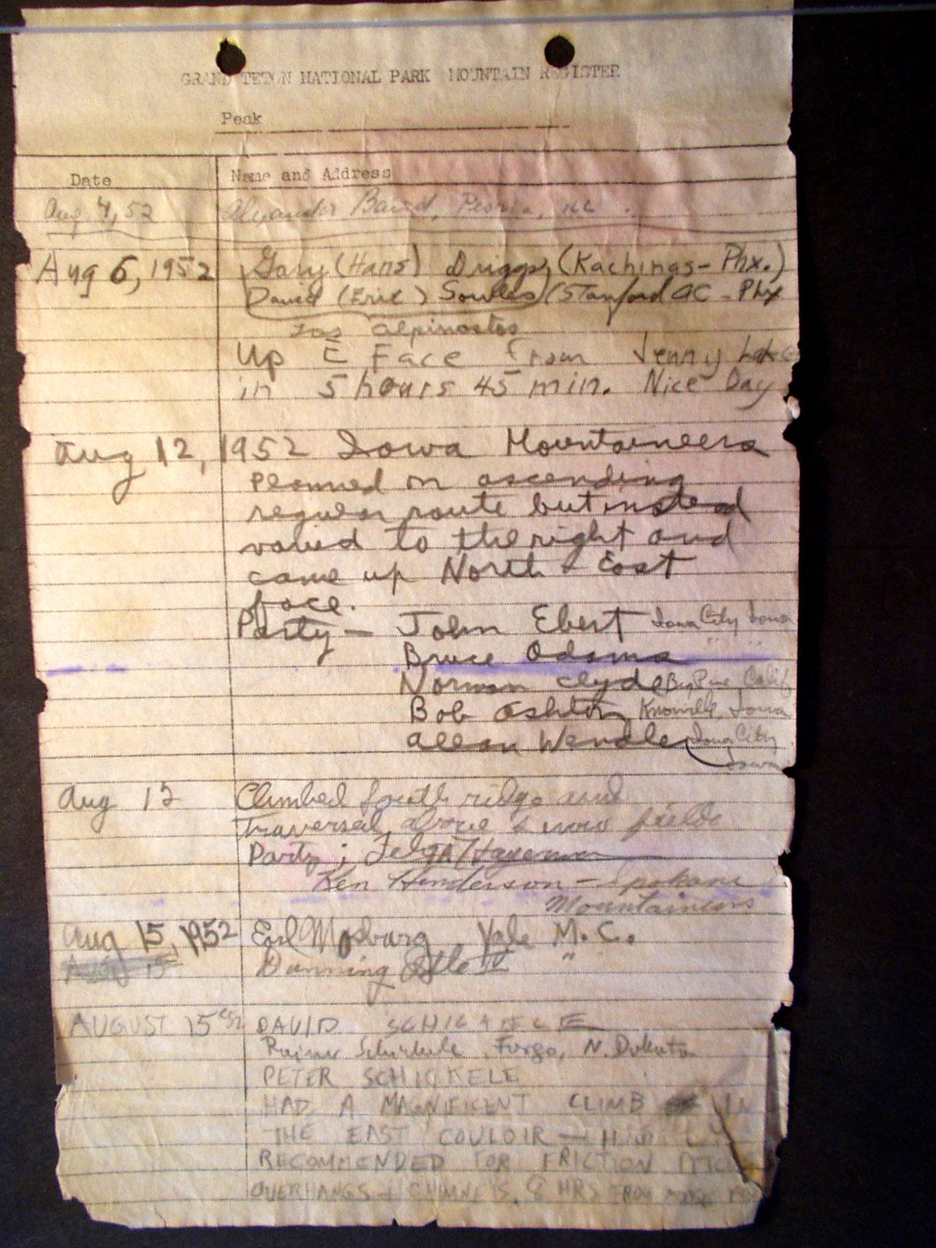 GRAND TETON NATIONAL PARK MOUNTAIN REGISTER
Peak
Date Name and Address
Aug 4, 52 Alexander Baird, Peoria, Ill
Aug 6, 1952 Gary (Hans) Driggs (Kachinas - Phx.)
David (Eric) Sowles (Stanford AC - Phx
Los Alpinostos
Up E Face from Jenny Lake
in 5 hours 45 min. Nice Day
Aug 12, 1952 Iowa Mountaineers
planned on ascending
regular route but instead
varied to the right and
came up North East
face.
Party - John Ebert Iowa City Iowa
Bruce Adams " "
Norman Clyde Big Pine Calif
Bob Ashton Knoxville, Iowa
Allan Wendler Iowa City
Iowa
Aug 12 Climbed South ridge and
traversed above snow field
Party; Hagerman
Ken Henderson - Spokane
Mountaineers
Aug 15, 1952 Yale M.C.
Aug 15 Dunning "
AUGUST 15 52 DAVID SCHICKELE
Rainer Schickele, Fargo, N. Dakota
PETER SCHICKELE
HAD A MAGNIFICENT CLIMB IN
THE EAST COULOIR -
RECOMMENDED FOR FRICTION
OVERHANGS + CHIMNEYS. 8 HRS FROM